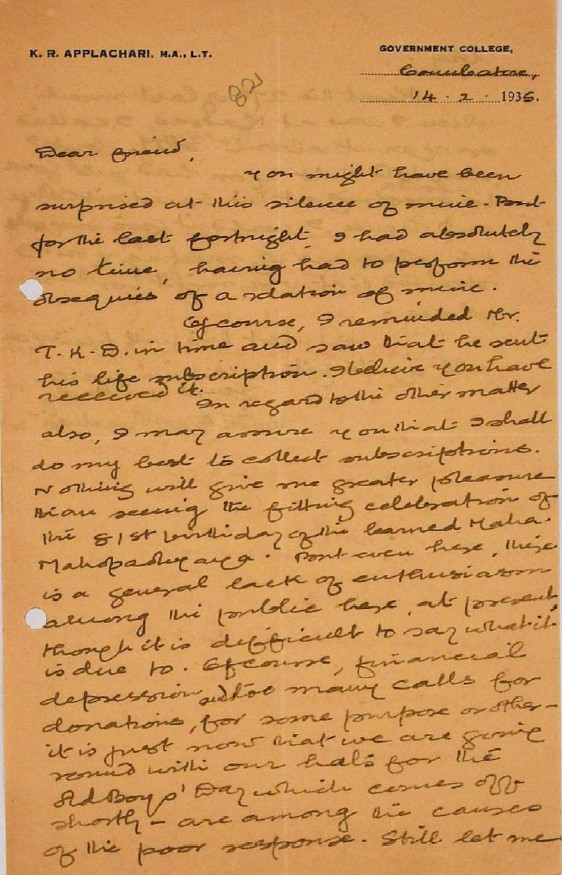 K. R. APPLACHARI, M.A., L.T.
GOVERNMENT COLLEGE,
Coimbatore,
14 . 2 . 1935.
82
Dear friend,
You might have been
surprised at this silence of mine. But
for the last fortnight, I had absolutely
no time, having had to perform the
obsequies of a relation of mine.
Of course, I reminded Mr.
T. K. D. in time and saw that he sent
his life subscription. I believe you have
received it.
In regard to the other matter
also, I may assure you that I shall
do my best to collect subscriptions.
Nothing will give me greater pleasure
than seeing the fitting celebration of
the 81st birthday of the learned Maha-
Mahopadhyaya. But even here, there
is a general lack of enthusiasm
among the public here, at present,
though it is difficult to say what it
is due to. Of course, financial
depression, and too many calls for
donations, for some purpose or other –
it is just now that we are going
round with our hats for the
Old Boys' Day which comes off
shortly – are among the causes
of the poor response. Still let me